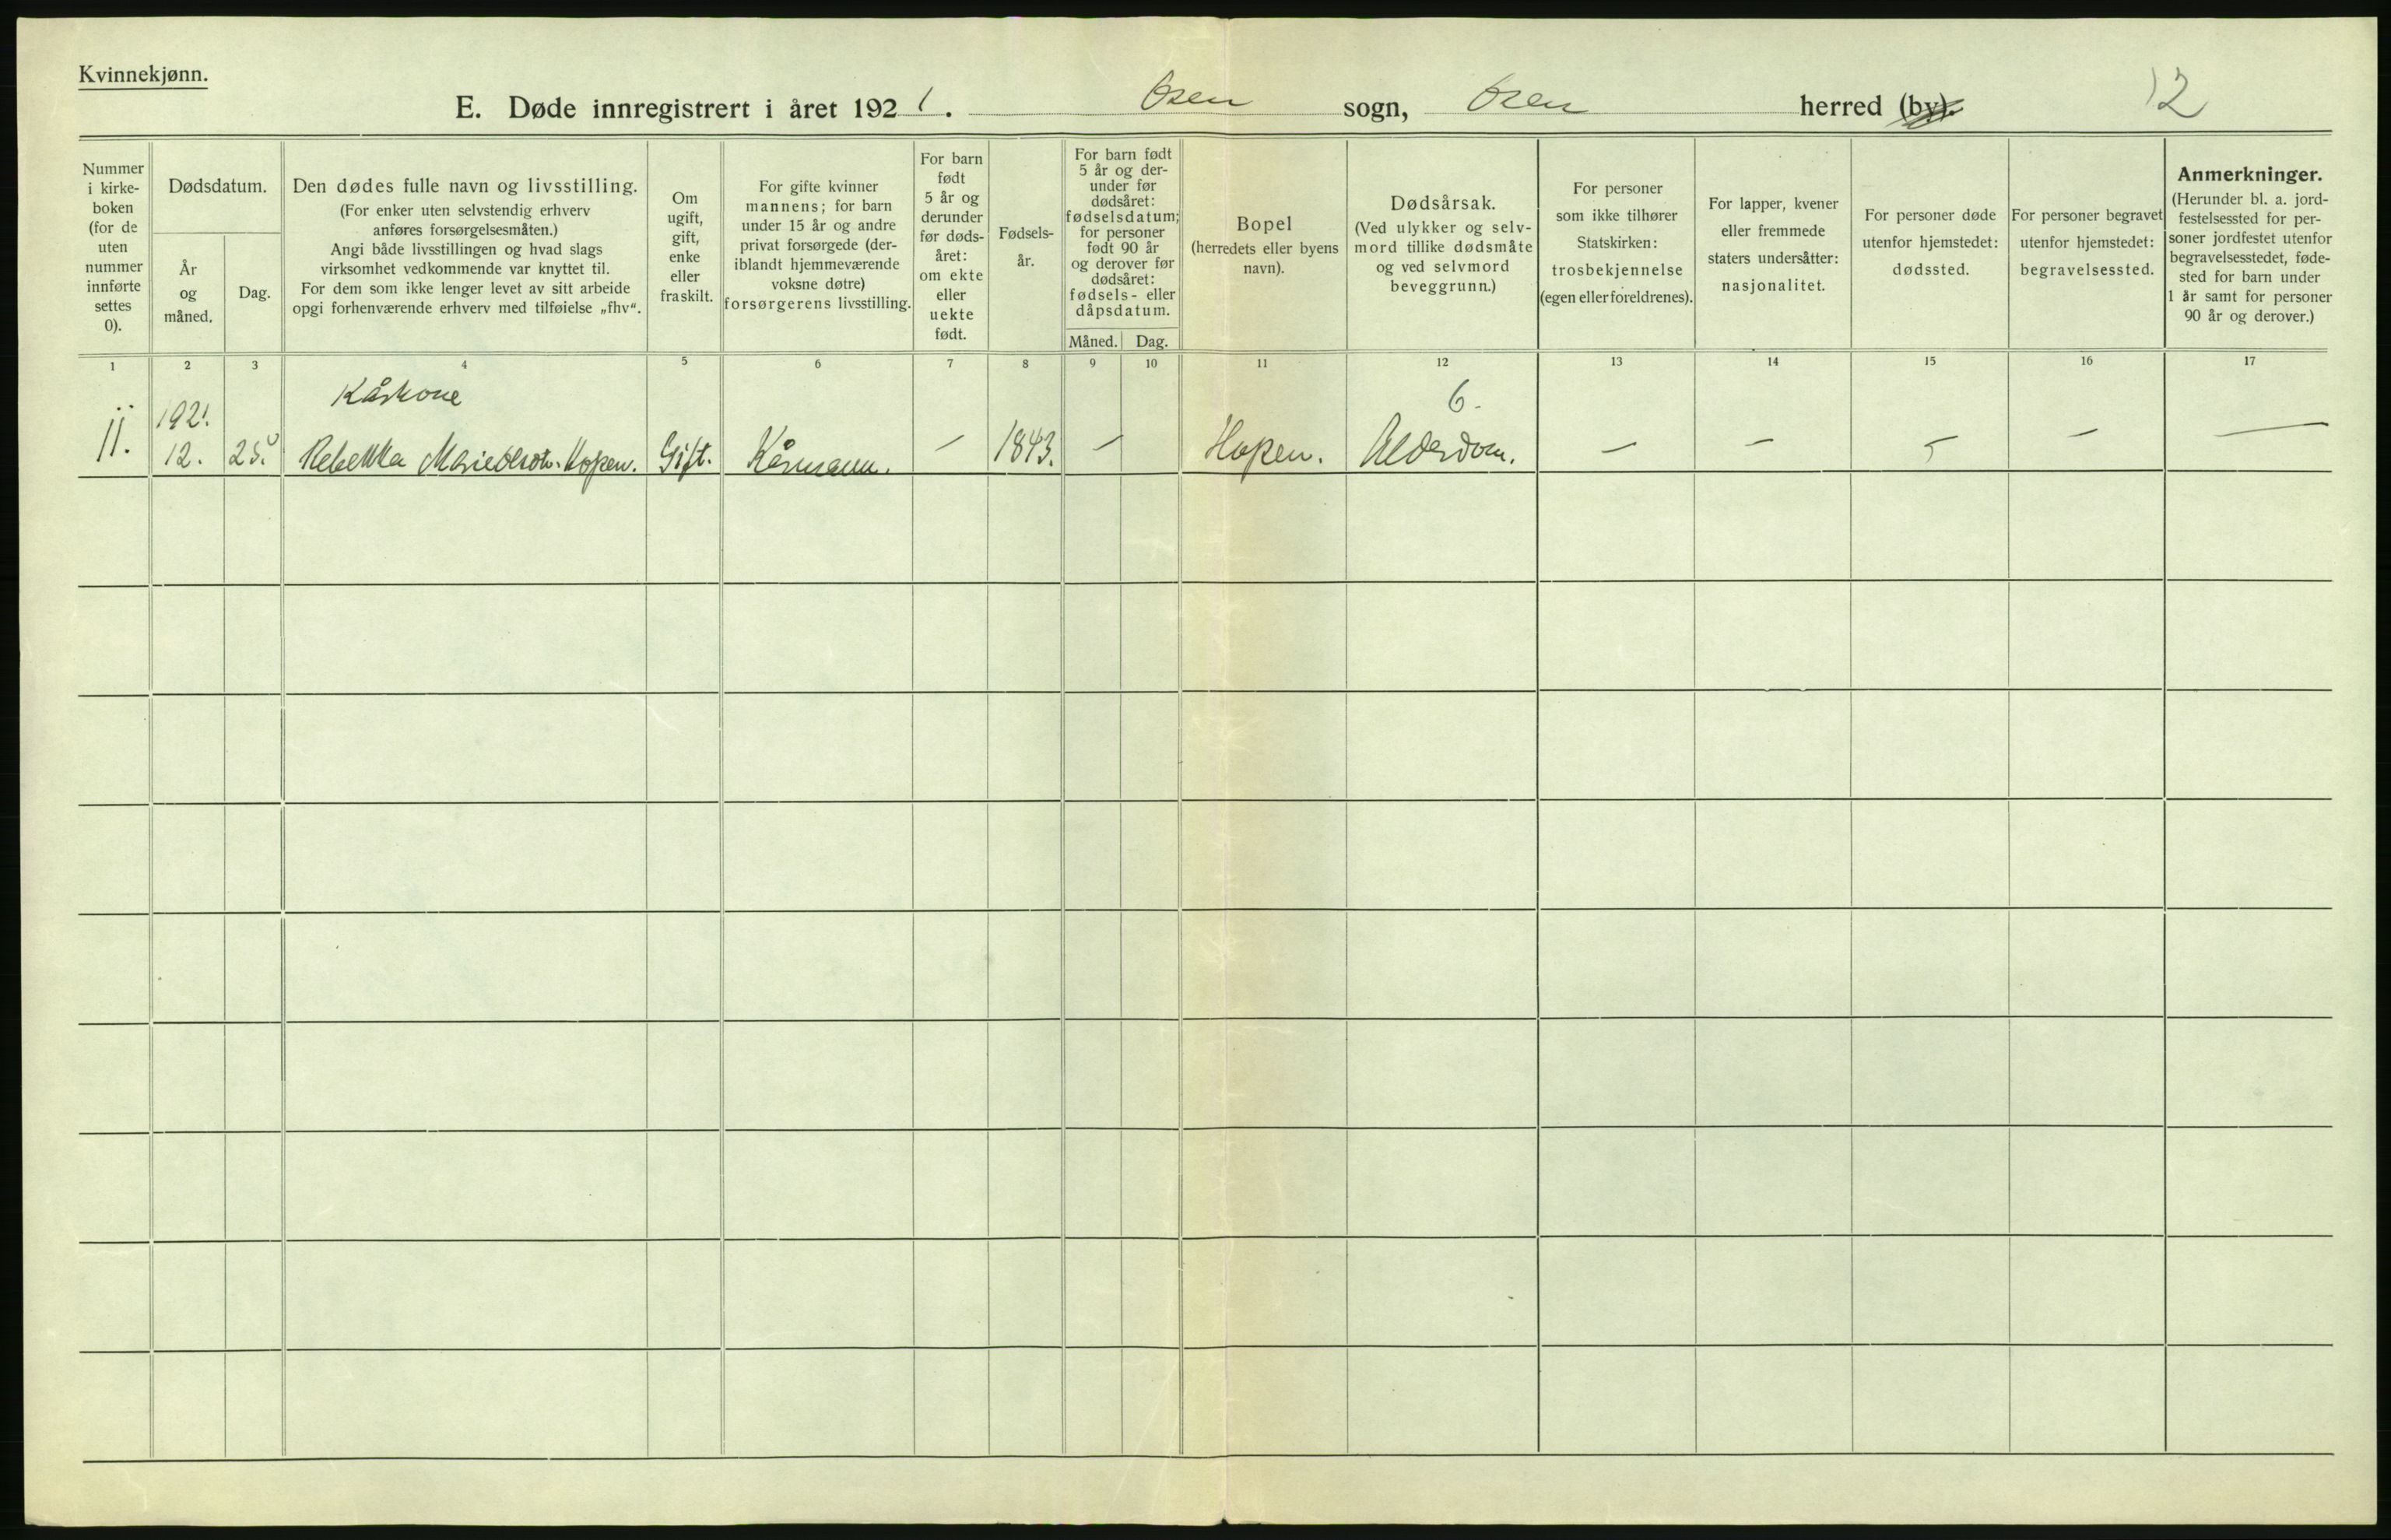 Kvinnekjønn.
E. Døde innregistrert i året 1921. Osen sogn, Osen herred (by).
12
Nummer
i kirke-
boken
(for de
uten
nummer
innførte
settes
0).
Dødsdatum.
År
og
måned.
Dag.
Den dødes fulle navn og livsstilling.
(For enker uten selvstendig erhverv
anføres forsørgelsesmåten.)
Angi både livsstillingen og hvad slags
virksomhet vedkommende var knyttet til.
For dem som ikke lenger levet av sitt arbeide
opgi forhenværende erhverv med tilføielse „fhv“.
Om
ugift,
gift,
enke
eller
fraskilt.
For gifte kvinner
mannens; for barn
under 15 år og andre
privat forsørgede (der-
iblandt hjemmeværende
voksne døtre)
forsørgerens livsstilling.
For barn
født
5 år og
derunder
før døds-
året:
om ekte
eller
uekte
født.
Fødsels-
år.
For barn født
5 år og der-
under før
dødsåret:
fødselsdatum;
for personer
født 90 år
og derover før
dødsåret:
fødsels- eller
dåpsdatum.
Måned.
Dag.
Bopel
(herredets eller byens
navn).
Dødsårsak.
(Ved ulykker og selv-
mord tillike dødsmåte
og ved selvmord
beveggrunn.)
For personer
som ikke tilhører
Statskirken:
trosbekjennelse
(egen eller foreldrenes).
For lapper, kvener
eller fremmede
staters undersåtter:
nasjonalitet.
For personer døde
utenfor hjemstedet:
dødssted.
For personer begravet
utenfor hjemstedet:
begravelsessted.
Anmerkninger.
(Herunder bl. a. jord-
festelsessted for per-
soner jordfestet utenfor
begravelsesstedet, føde-
sted for barn under
1 år samt for personer
90 år og derover.)
1 2 3 4 5 6 7 8 9 10 11 12 13 14 15 16 17
Kårkone 6.
1921
11. 12. 25. Rebekka Marie Hopen. Gift. Kårmann. — 1843. — Hopen. Alderdom. — — — — —